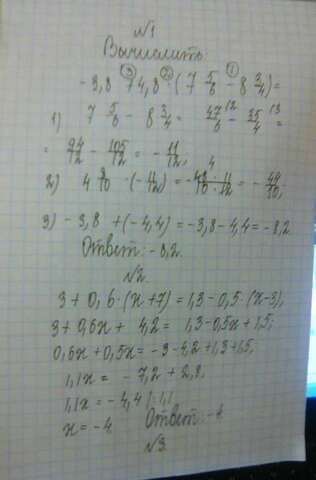 №1
Вычислить:
-3,8 + 4,8 · (7 5/6 - 8 3/4) =
1) 7 5/6 - 8 3/4 = 47/6 - 35/4 =
= 94/12 - 105/12 = - 11/12;
2) 4 8/10 · (- 11/12) = - 48 · 11/10 · 12 = - 44/10;
3) - 3,8 + (- 4,4) = - 3,8 - 4,4 = - 8,2
Ответ: - 8,2.
№2.
3 + 0,6 · (x + 7) = 1,3 - 0,5 · (x - 3),
3 + 0,6x + 4,2 = 1,3 - 0,5x + 1,5;
0,6x + 0,5x = - 3 - 4,2 + 1,3 + 1,5;
1,1x = - 7,2 + 2,8,
1,1x = - 4,4 | : 1,1
x = - 4 Ответ: - 4.
№3.